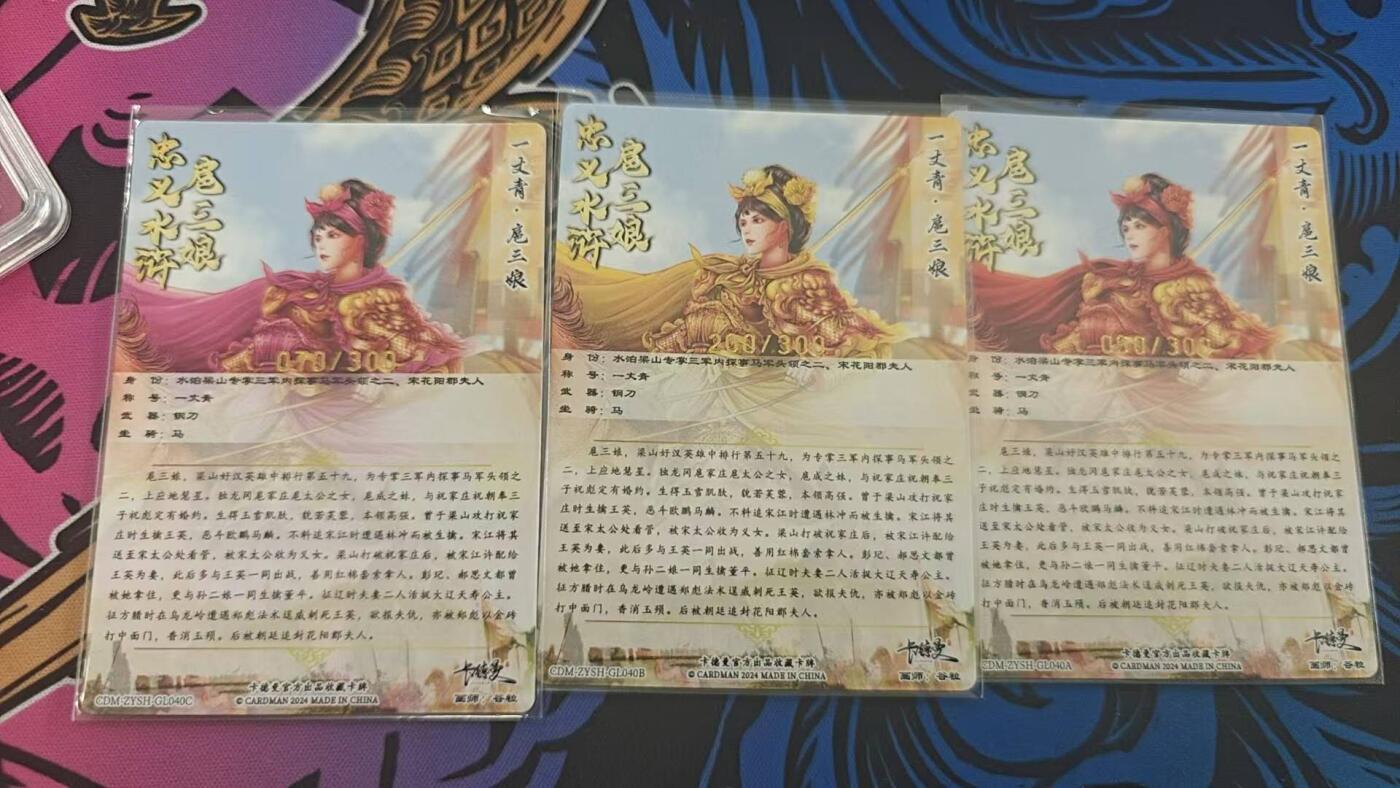 忠义水浒
扈三娘
一丈青·扈三娘
070/300
身 份：水泊梁山专掌三军内探事马军头领之二、宋花阳郡夫人
称 号：一丈青
武 器：钢刀
坐 骑：马
扈三娘，梁山好汉英雄中排行第五十九，为专掌三军内探事马军头领之
二，上应地慧星。独龙冈扈家庄扈太公之女，扈成之妹，与祝家庄祝朝奉三
子祝彪定有婚约。生得玉雪肌肤，貌若芙蓉，本领高强。曾于梁山攻打祝家
庄时生擒王英，恶斗欧鹏马麟。不料追宋江时遭遇林冲而被生擒。宋江将其
送至宋太公处看管，被宋太公收为义女。梁山打破祝家庄后，被宋江许配给
王英为妻，此后多与王英一同出战，善用红棉套索拿人。彭玘、郝思文都曾
被她拿住，更与孙二娘一同生擒董平。征辽时夫妻二人活捉大辽天寿公主。
征方腊时在乌龙岭遭遇郑彪法术逞威刺死王英，欲报夫仇，亦被郑彪以金砖
打中面门，香消玉殒。后被朝廷追封花阳郡夫人。
CDM-ZYSH-GL040C
卡德曼官方出品收藏卡牌
© CARDMAN 2024 MADE IN CHINA
卡德曼
画师：谷粒
忠义水浒
扈三娘
一丈青·扈三娘
200/300
身 份：水泊梁山专掌三军内探事马军头领之二、宋花阳郡夫人
称 号：一丈青
武 器：钢刀
坐 骑：马
扈三娘，梁山好汉英雄中排行第五十九，为专掌三军内探事马军头领之
二，上应地慧星。独龙冈扈家庄扈太公之女，扈成之妹，与祝家庄祝朝奉三
子祝彪定有婚约。生得玉雪肌肤，貌若芙蓉，本领高强。曾于梁山攻打祝家
庄时生擒王英，恶斗欧鹏马麟。不料追宋江时遭遇林冲而被生擒。宋江将其
送至宋太公处看管，被宋太公收为义女。梁山打破祝家庄后，被宋江许配给
王英为妻，此后多与王英一同出战，善用红棉套索拿人。彭玘、郝思文都曾
被她拿住，更与孙二娘一同生擒董平。征辽时夫妻二人活捉大辽天寿公主。
征方腊时在乌龙岭遭遇郑彪法术逞威刺死王英，欲报夫仇，亦被郑彪以金砖
打中面门，香消玉殒。后被朝廷追封花阳郡夫人。
CDM-ZYSH-GL040B
卡德曼官方出品收藏卡牌
© CARDMAN 2024 MADE IN CHINA
卡德曼
画师：谷粒
忠义水浒
扈三娘
一丈青·扈三娘
身 份：水泊梁山专掌三军内探事马军头领之二、宋花阳郡夫人
称 号：一丈青
武 器：钢刀
坐 骑：马
扈三娘，梁山好汉英雄中排行第五十九，为专掌三军内探事马军头领之
二，上应地慧星。独龙冈扈家庄扈太公之女，扈成之妹，与祝家庄祝朝奉三
子祝彪定有婚约。生得玉雪肌肤，貌若芙蓉，本领高强。曾于梁山攻打祝家
庄时生擒王英，恶斗欧鹏马麟。不料追宋江时遭遇林冲而被生擒。宋江将其
送至宋太公处看管，被宋太公收为义女。梁山打破祝家庄后，被宋江许配给
王英为妻，此后多与王英一同出战，善用红棉套索拿人。彭玘、郝思文都曾
被她拿住，更与孙二娘一同生擒董平。征辽时夫妻二人活捉大辽天寿公主。
征方腊时在乌龙岭遭遇郑彪法术逞威刺死王英，欲报夫仇，亦被郑彪以金砖
打中面门，香消玉殒。后被朝廷追封花阳郡夫人。
CDM-ZYSH-GL040A
卡德曼官方出品收藏卡牌
© CARDMAN 2024 MADE IN CHINA
卡德曼
画师：谷粒